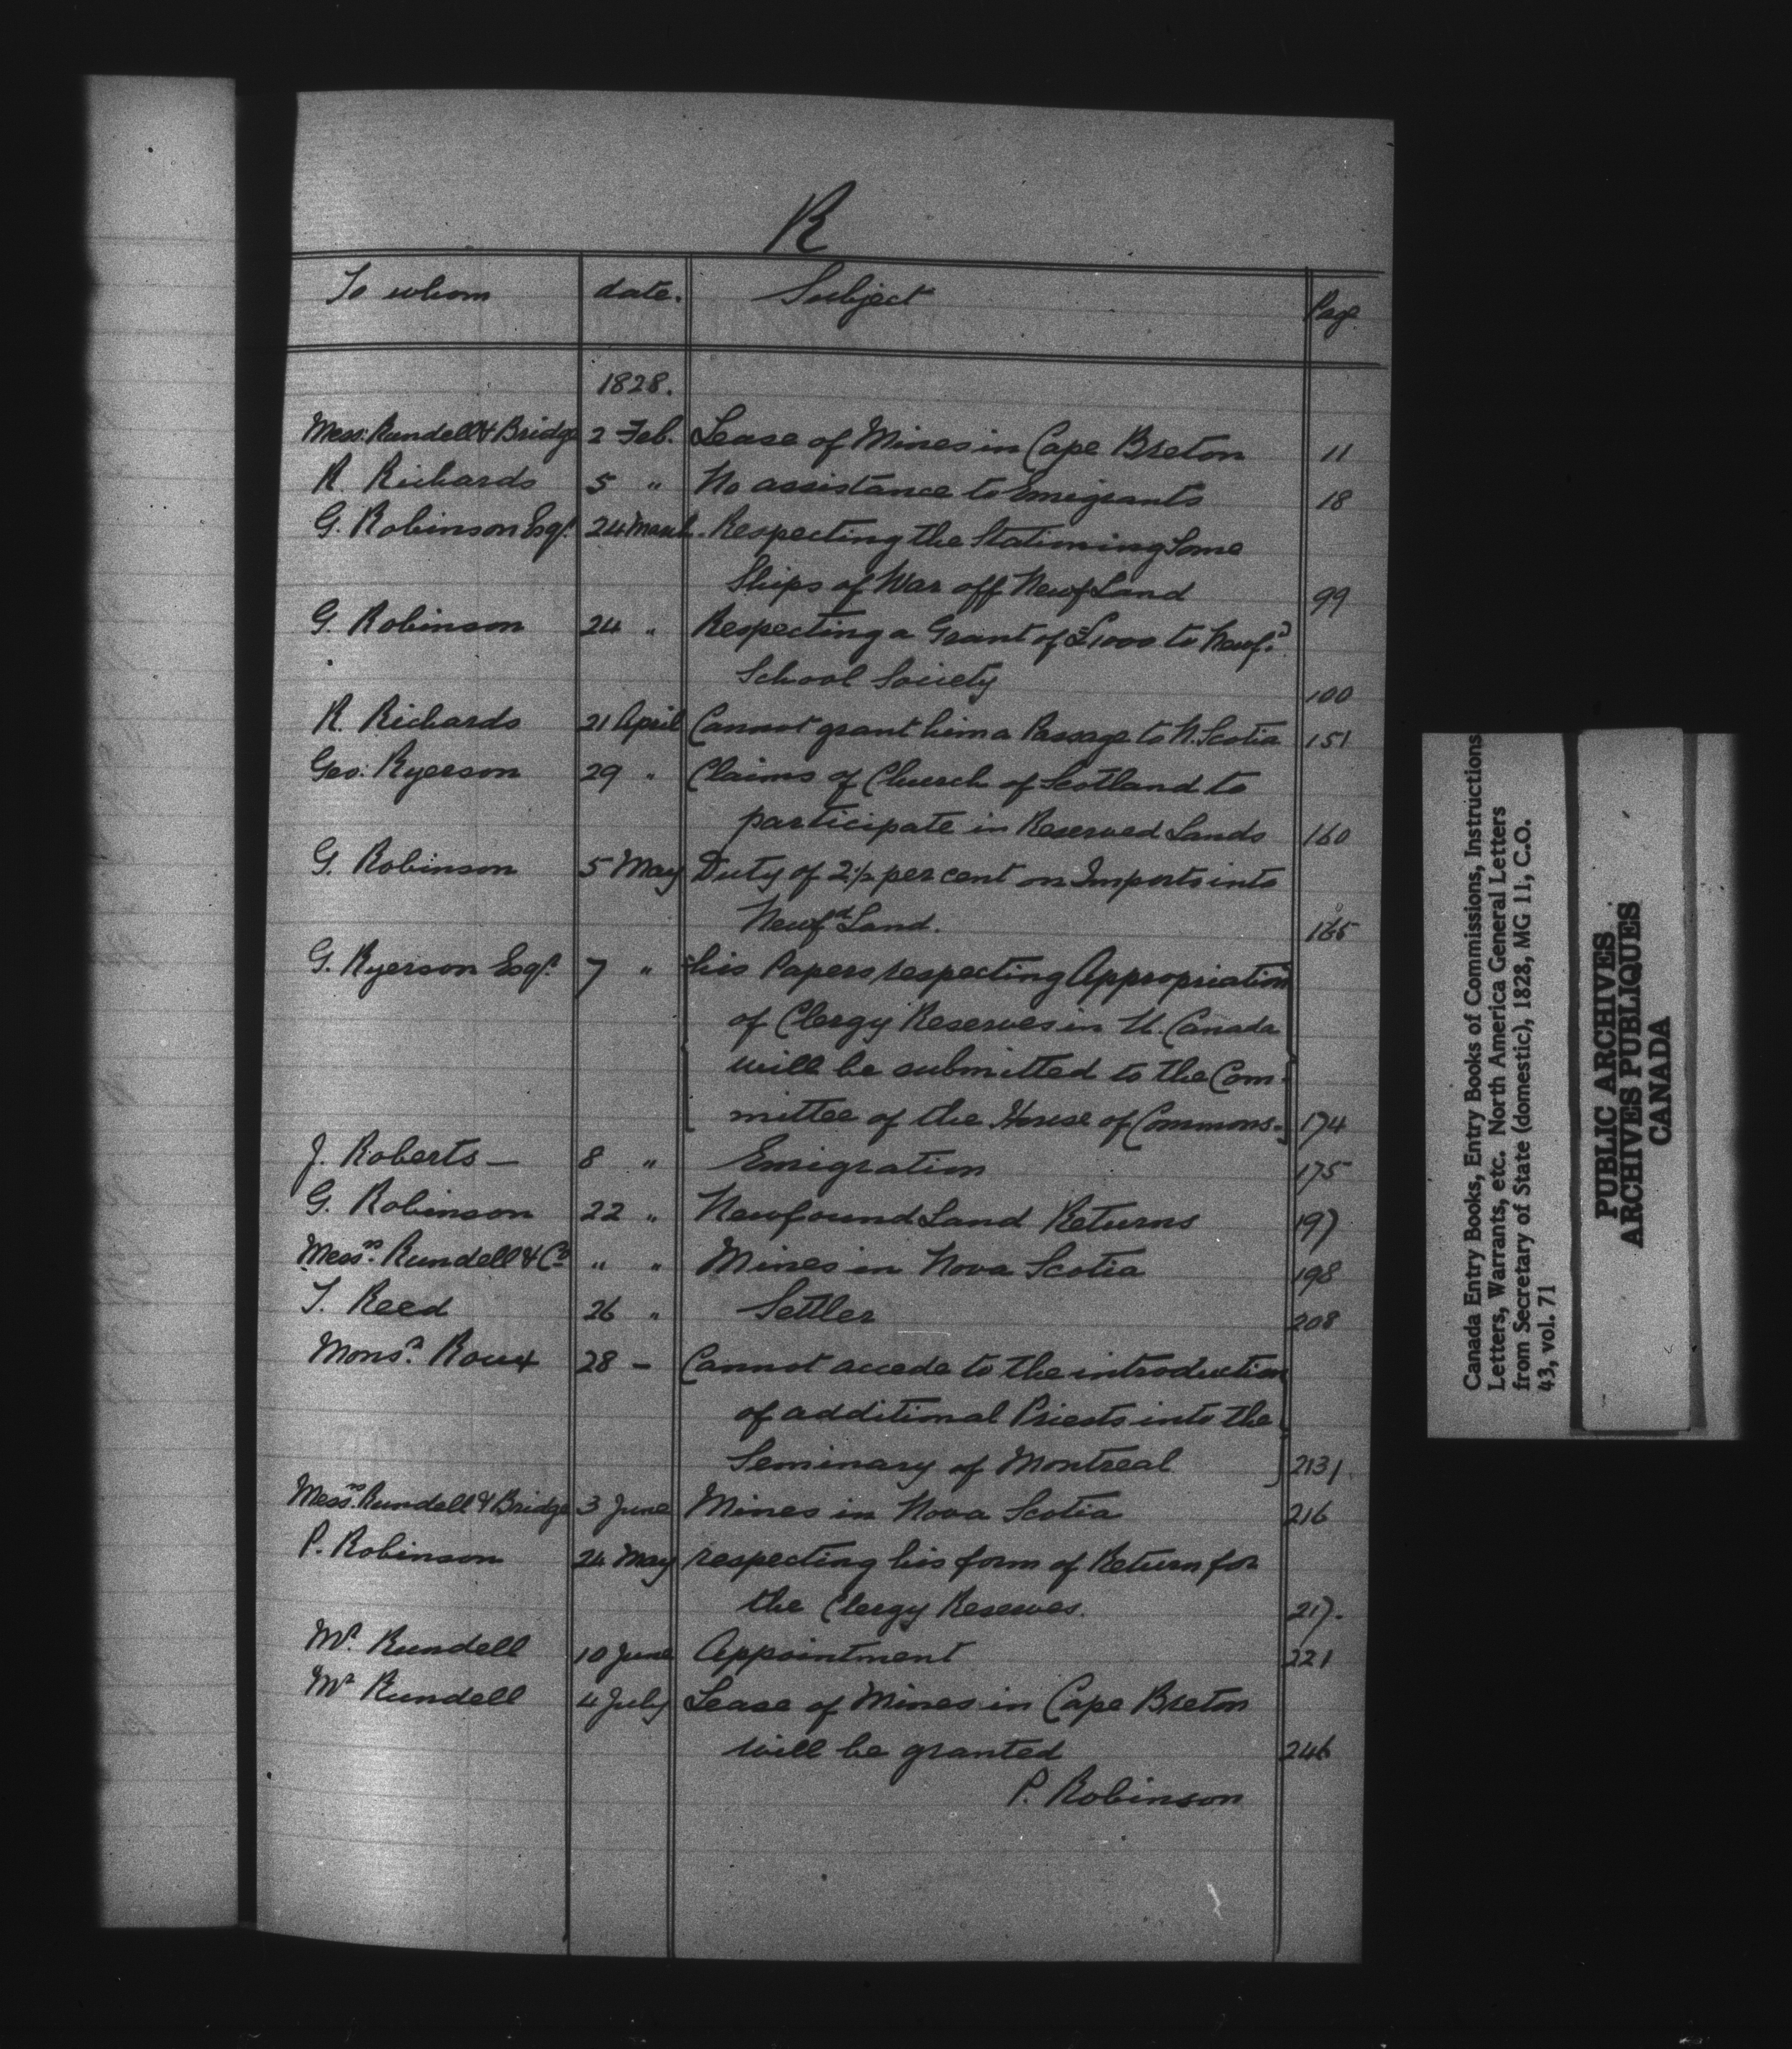 R
To whom date. Subject Page
1828.
Mess: Rundell & Bridge 2 Feb. Lease of Mines in Cape Breton 11
R Richards 5 " No assistance to Emigrants 18
G. Robinson Esqr. 24 March. Respecting the Stationing Some
Ships of War off NewfLand 99
G. Robinson 24 " Respecting a Grant of £1000 to Newf.d
School Society 100
R. Richards 21 April Cannot grant him a Passage to N. Scotia 151
Geo: Ryerson 29 " Claims of Church of Scotland to
participate in Reserved Lands 160
G. Robinson 5 May Duty of 2½ per cent on Imports into
Newfd Land. 165
G. Ryerson Esqr. 7 " his Papers respecting Appropriation
of Clergy Reserves in U. Canada
will be submitted to the Com-
mittee of the House of Commons. 174
J. Roberts — 8 " Emigration 175
G. Robinson 22 " NewfoundLand Returns 197
Messrs. Rundell & Co " " Mines in Nova Scotia 198
T. Reed 26 " Settler 208
Monsr. Roux 28 - Cannot accede to the introduction
of additional Priests into the
Seminary of Montreal 213
Messrs. Rundell & Bridge 3 June Mines in Nova Scotia 216
P. Robinson 24 May respecting his form of Return for
the Clergy Reserves. 217.
Mr. Rundell 10 June Appointment 221
Mr Rundell 4 July Lease of Mines in Cape Breton
will be granted 246
P. Robinson
Canada Entry Books, Entry Books of Commissions, Instructions
Letters, Warrants, etc. North America General Letters
from Secretary of State (domestic), 1828, MG 11, C.O.
43, vol. 71
PUBLIC ARCHIVES
ARCHIVES PUBLIQUES
CANADA